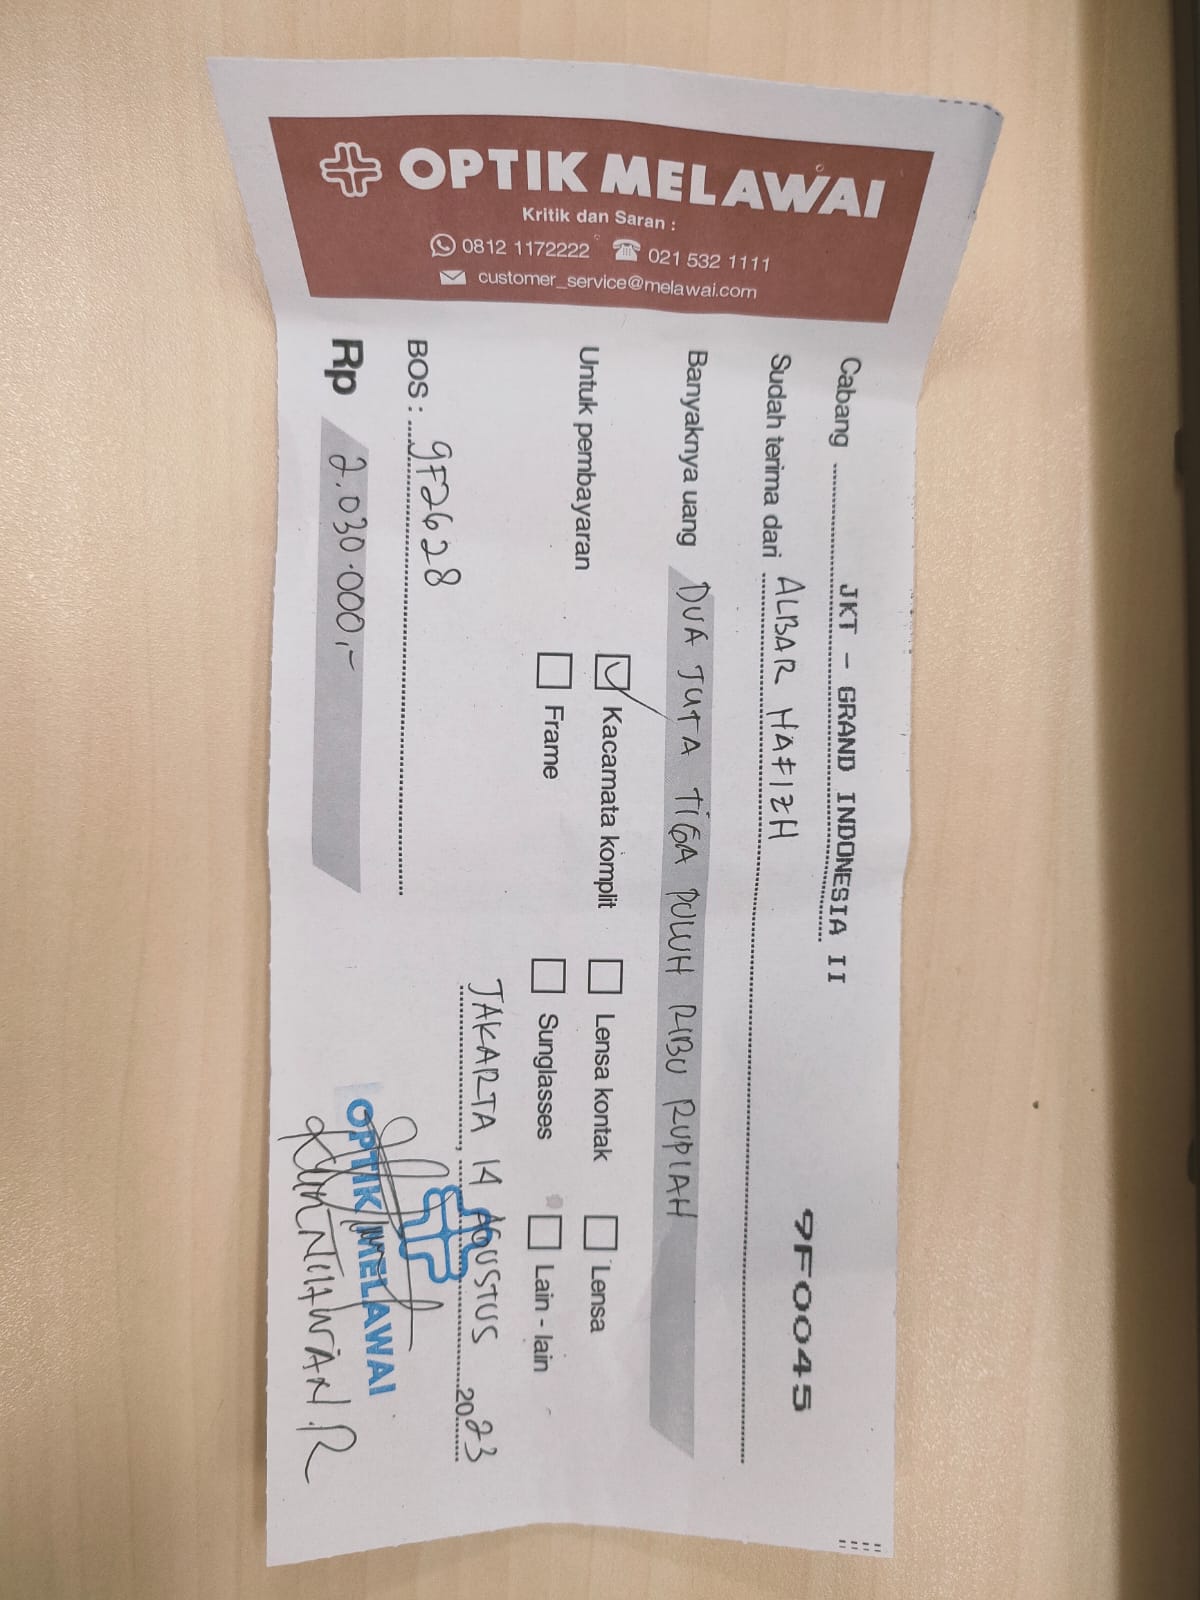 OPTIK MELAWAI
Kritik dan Saran :
0812 1172222 021 532 1111
customer_service@melawai.com
9F0045
Cabang JKT - GRAND INDONESIA II
Sudah terima dari ALBAR HAFIZH
Banyaknya uang DUA JUTA TIGA PULUH RIBU RUPIAH
Untuk pembayaran Kacamata komplit Lensa kontak Lensa
Frame Sunglasses Lain - lain
BOS : 9F2628
JAKARTA, 14 AGUSTUS 2023
Rp 2.030.000,-
OPTIK MELAWAI